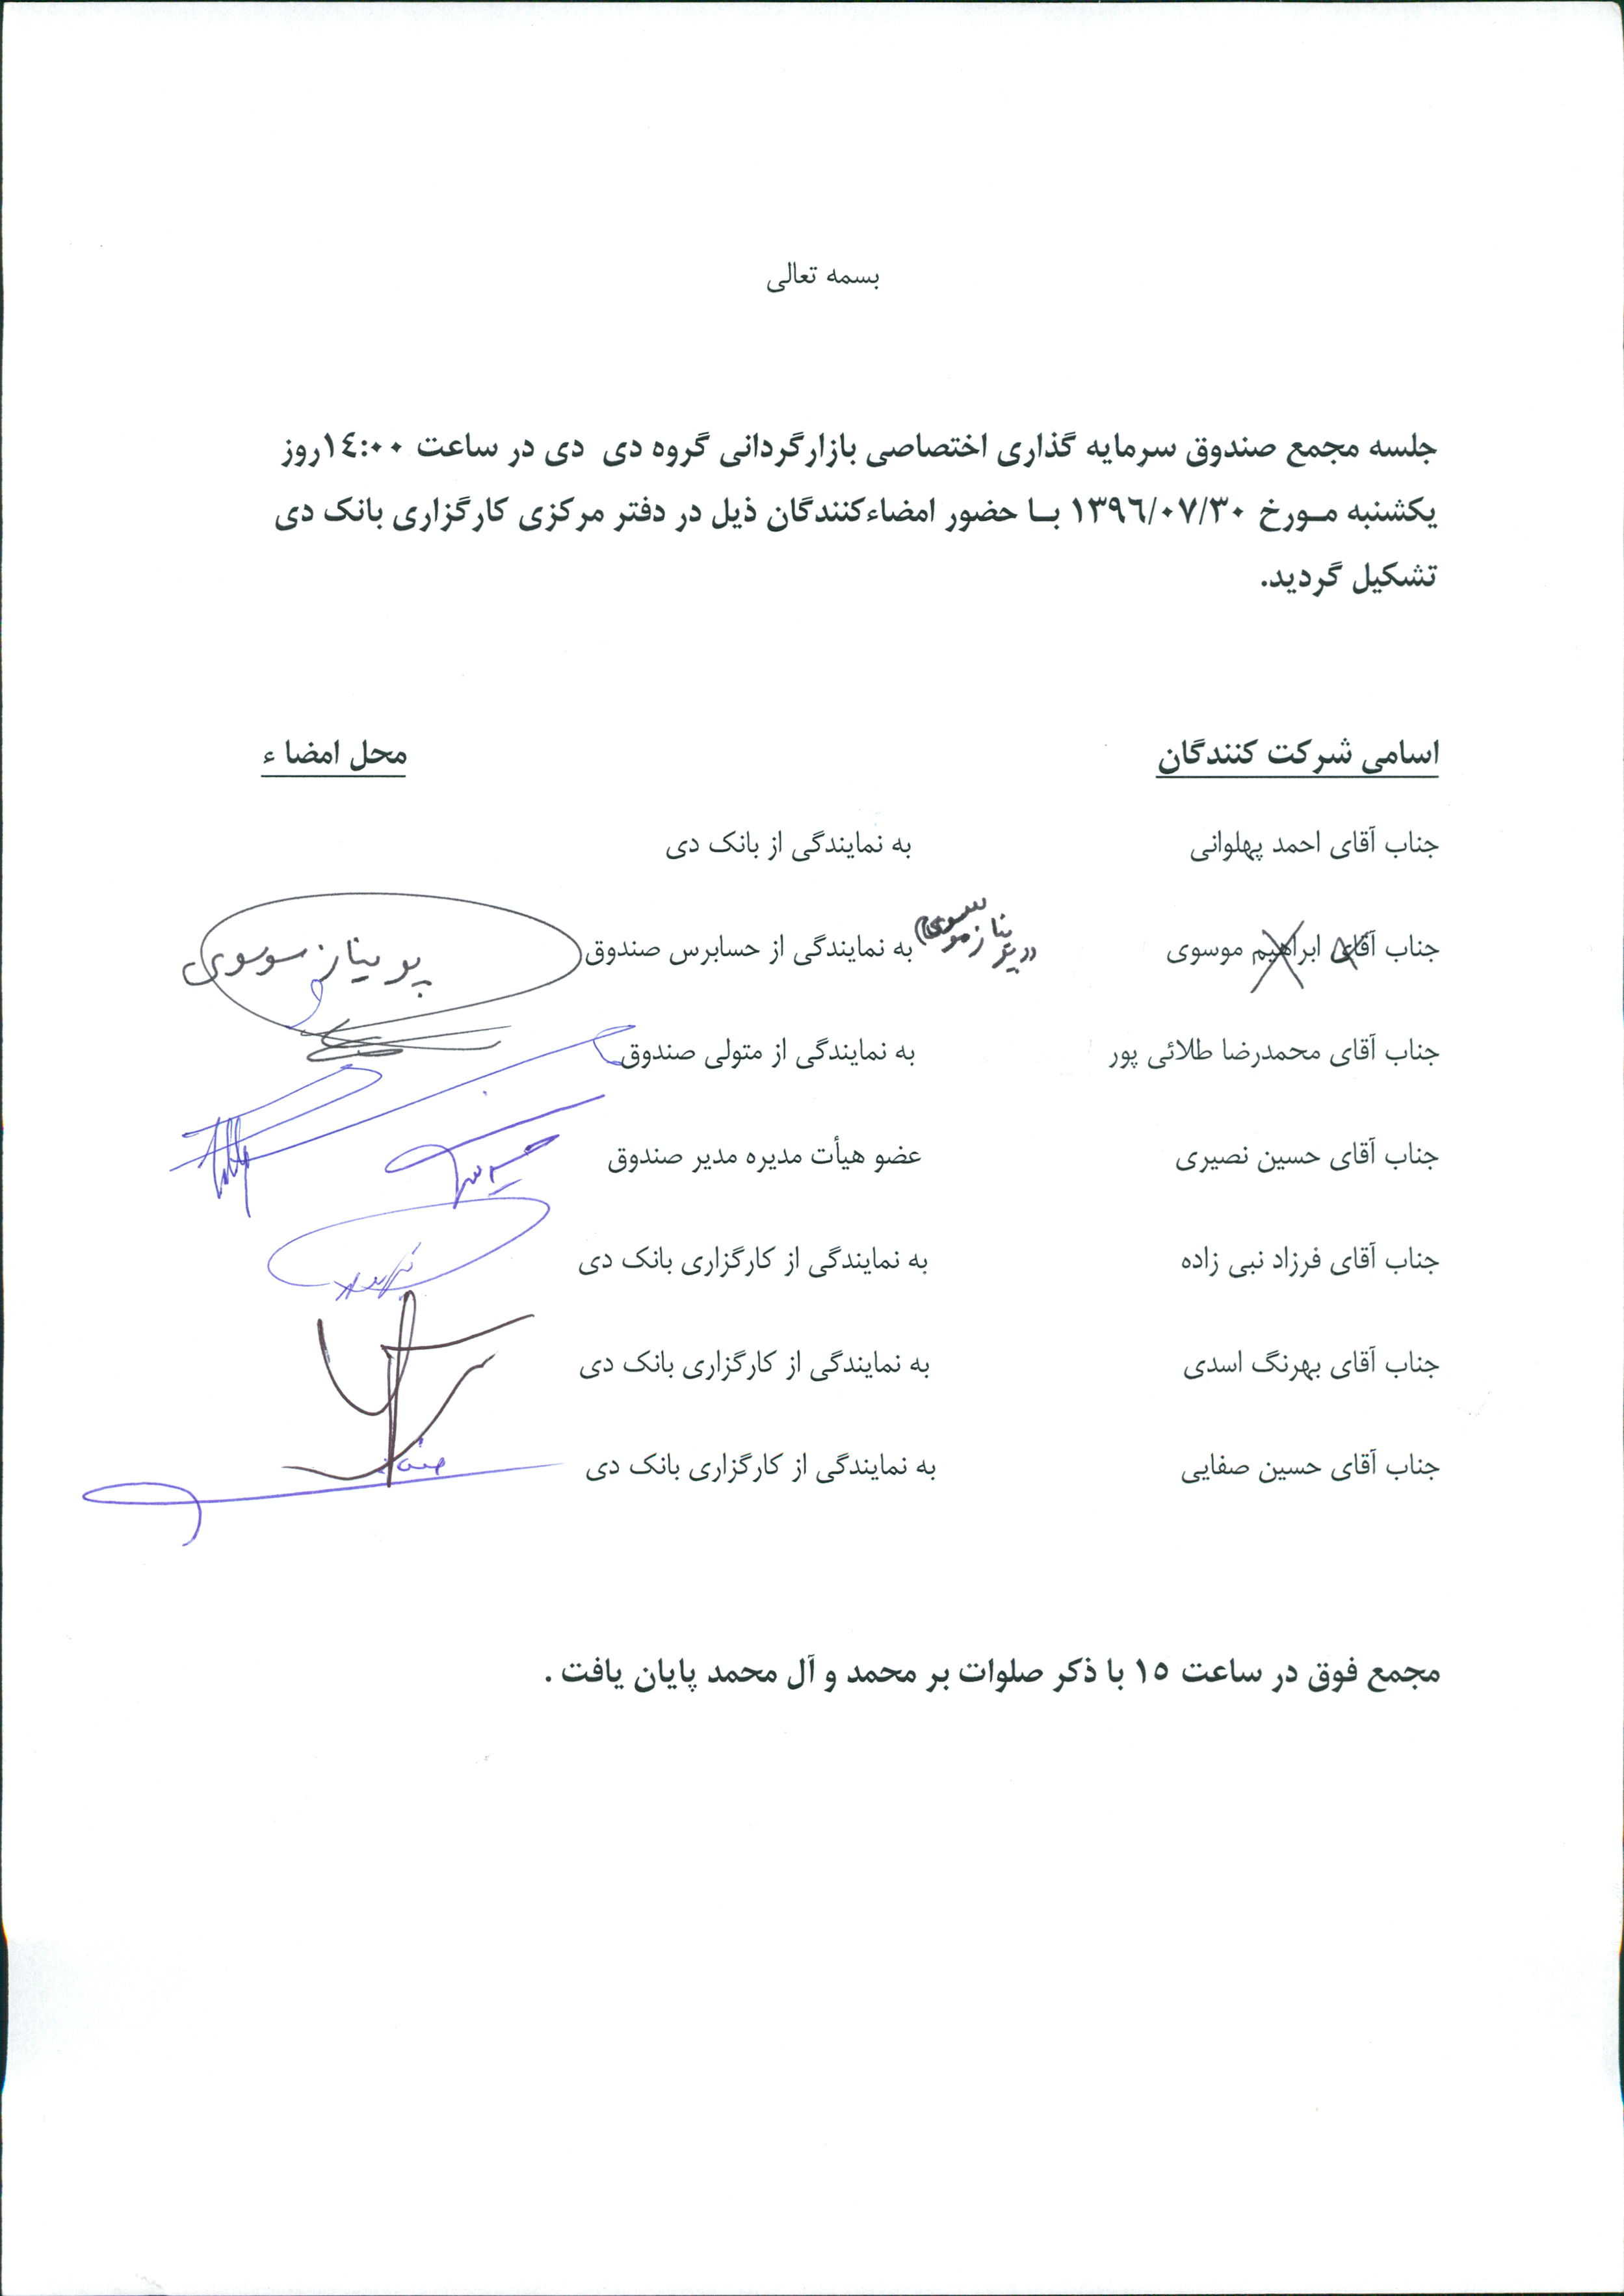 بسمه تعالی
جلسه مجمع صندوق سرمایه گذاری اختصاصی بازارگردانی گروه دی دی در ساعت ١٤:٠٠روز
یکشنبه مـورخ ١٣٩٦/٠٧/٣٠ بـا حضور امضاءکنندگان ذیل در دفتر مرکزی کارگزاری بانک دی
تشکیل گردید.
اسامی شرکت کنندگان محل امضا ء
جناب آقای احمد پهلوانی به نمایندگی از بانک دی
جناب آقای ابراهیم موسوی به نمایندگی از حسابرس صندوق موسوی
جناب آقای محمدرضا طلائی پور به نمایندگی از متولی صندوق
جناب آقای حسین نصیری عضو هیأت مدیره مدیر صندوق
جناب آقای فرزاد نبی زاده به نمایندگی از کارگزاری بانک دی
جناب آقای بهرنگ اسدی به نمایندگی از کارگزاری بانک دی
جناب آقای حسین صفایی به نمایندگی از کارگزاری بانک دی
مجمع فوق در ساعت ١٥ با ذکر صلوات بر محمد و آل محمد پایان یافت .